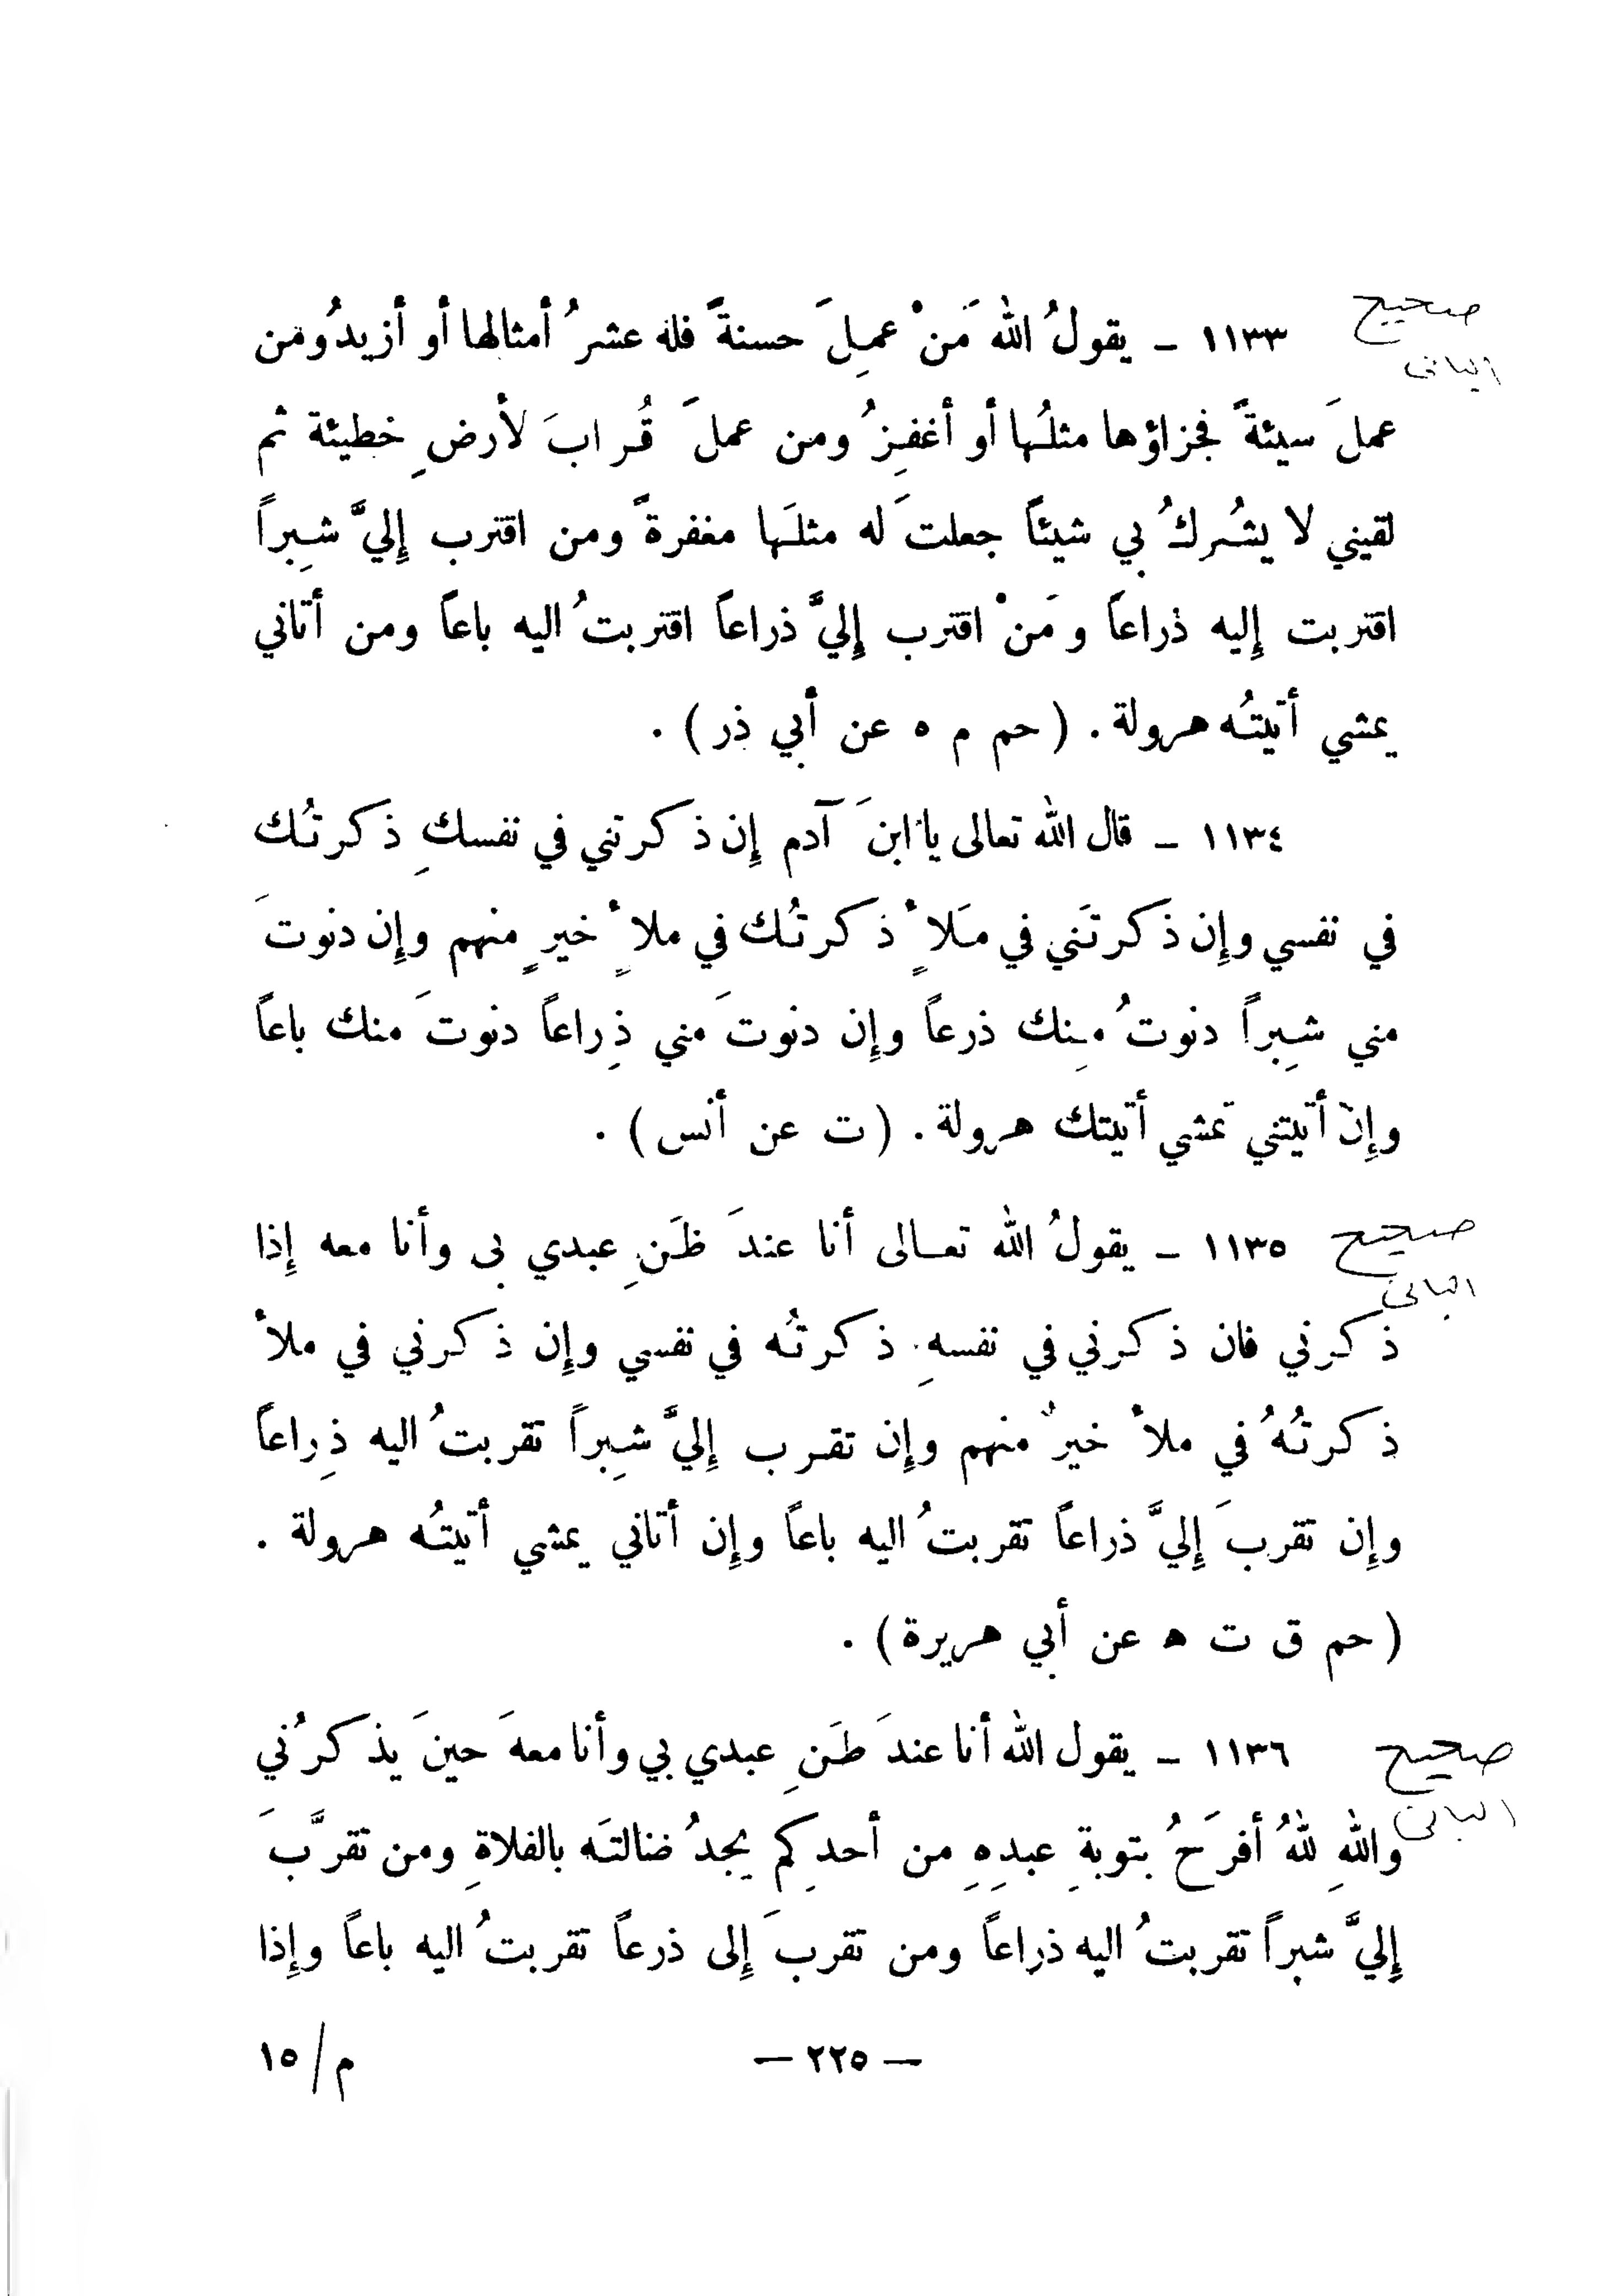 صحيح ١١٣٣ - يقولُ اللهُ مَنْ عمِلَ حسنةً فله عشرُ أمثالها أو أزيدُ ومن
البانى
عملَ سيئةً فجزاؤها مثلُها أو أغفِرُ ومن عملَ قُرابَ لأرضِ خطيئة ثم
لقيني لا يشُركُ بي شيئاً جعلتَ له مثلَها مغفرةً ومن اقترب إِليَّ شِبراً
اقتربت إِليه ذراعاً ومَنْ اقترب إِليَّ ذراعاً اقتربتُ اليه باعاً ومن أتاني
يمشي أتيتُه هرولة . ( حم م ه عن أبي ذر ) .
١١٣٤ - قال الله تعالى يا ابنَ آدم إِن ذكرتني في نفسكِ ذكرتُك
في نفسي وإِن ذكرتَني في مَلأٍ ذكرتُك في ملأٍ خيرٍ منهم وإِن دنوتَ
مني شِبراً دنوتُ مِنك ذرعاً وإِن دنوتَ مني ذِراعاً دنوتَ منك باعاً
وإِن أتيتني تمشي أتيتك هرولة . ( ت عن أنس ) .
صحيح ١١٣٥ - يقولُ اللهُ تعالى أنا عندَ ظَنِ عبدي بى وأنا معه إِذا
البانى
ذكرني فان ذكرني في نفسهِ ذكرتُه في نفسي وإِن ذكرني في ملأ
ذكرتُهُ في ملأ خيرٌ منهم وإِن تقرب إِليَّ شِبراً تقربتُ اليه ذِراعاً
وإِن تقربَ إِليَّ ذراعاً تقربتُ اليه باعاً وإِن أتاني يمشي أتيتُه هرولة .
( حم ق ت ه عن أبي هريرة ) .
صحيح ١١٣٦ - يقول الله أنا عندَ ظَنِ عبدي بي وأنا معهَ حينَ يذكرُني
البانى
واللهِ للهُ أفرَحُ بتوبةِ عبدِهِ من أحدِكم يجدُ ضالتَه بالفلاةِ ومن تقرَّبَ
إِليَّ شبراً تقربتُ اليه ذراعاً ومن تقربَ إِلى ذرعاً تقربتُ اليه باعاً وإِذا
— ٢٢٥ —
م/١٥